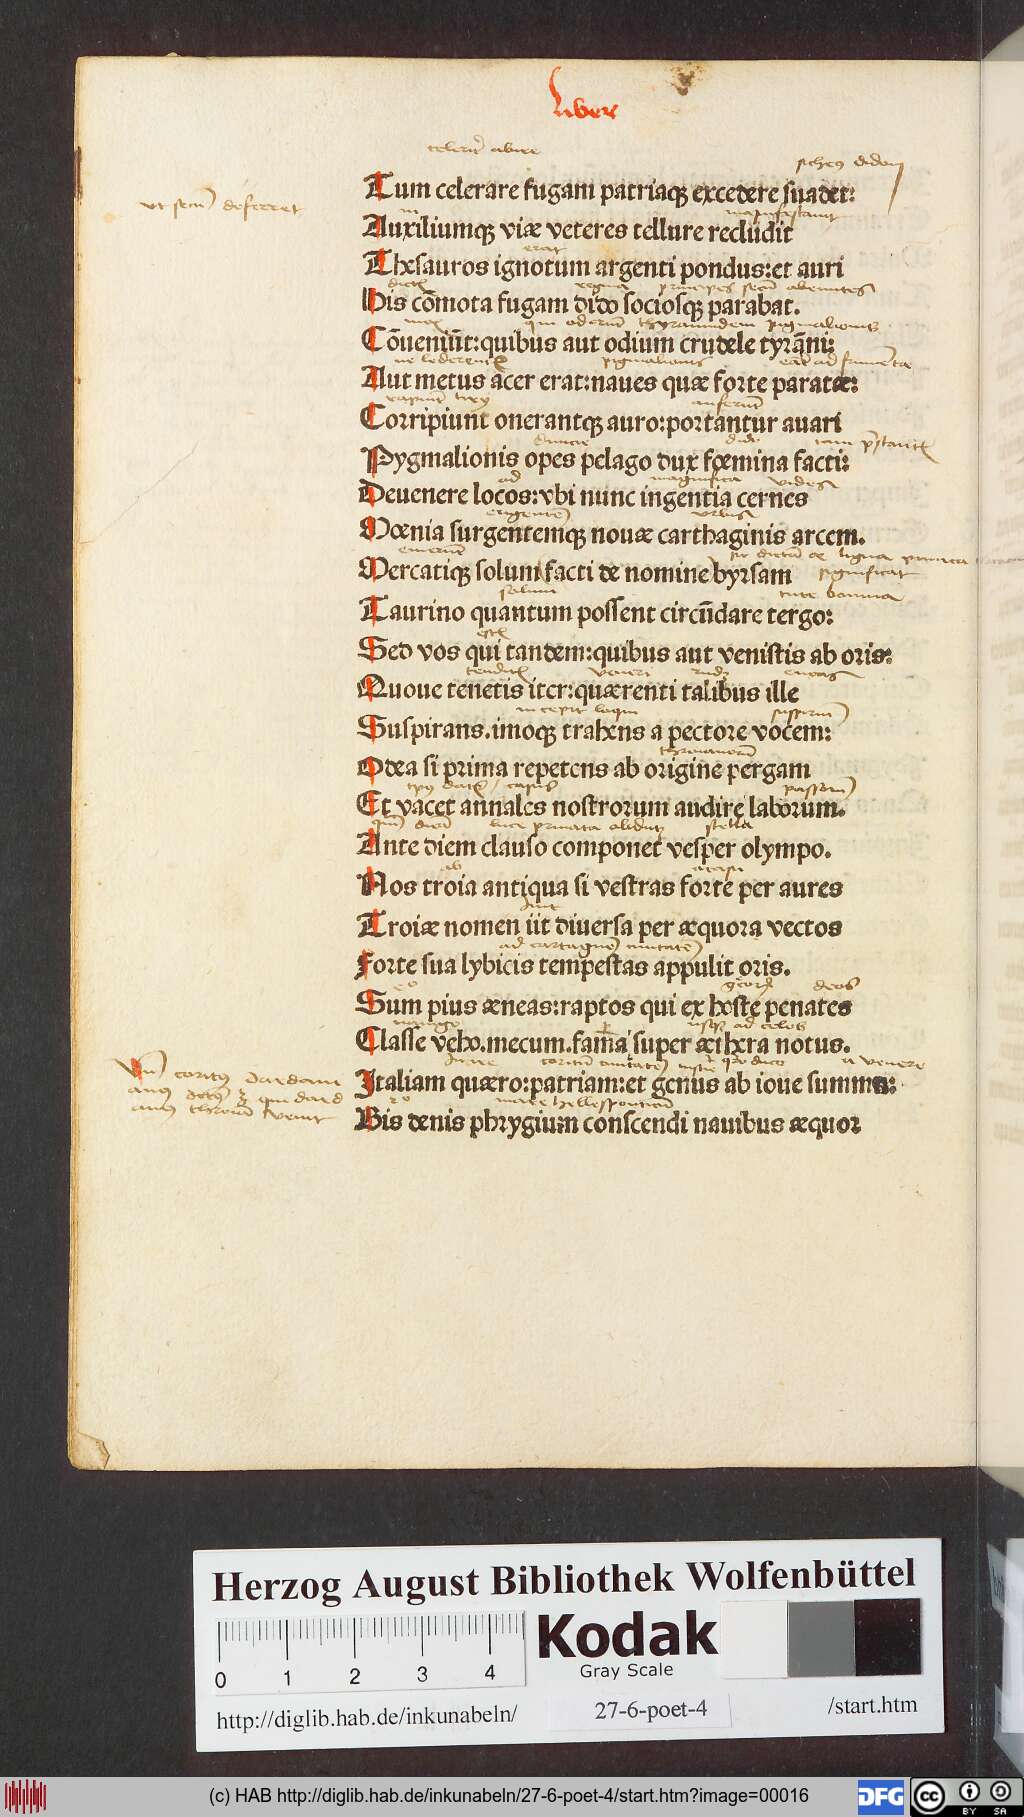 Liber
celerit̄ abire
sicheus didoni
Tum celerare fugam patriaqꝫ excedere suadet:
ut secū deferret
Auxiliumqꝫ viæ veteres tellure recludit
Thesauros ignotum argenti pondus:et auri
erat
His cōmota fugam dido sociosqꝫ parabat.
dictis regina
Cōueniūt:quibus aut odium crudele tyrāni:
Aut metus acer erat:naues quæ forte paratæ:
pigmalionis
Corripiunt onerantqꝫ auro:portantur auari
Pygmalionis opes pelago dux fœmina facti:
diuicie dido
Deuenere locos:vbi nunc ingentia cernes
ad magnifica vides
Mœnia surgentemqꝫ nouæ carthaginis arcem.
Mercatiqꝫ solum facti de nomine byrsam
emerūt significat
Taurino quantum possent circūdare tergo:
solum
Sed vos qui tandem:quibus aut venistis ab oris:
estis
Quoue tenetis iter:quærenti talibus ille
tenditis veneri eneas
Suspirans.imoqꝫ trahens a pectore vocem:
incepit loqui
O dea si prima repetens ab origine pergam
Et vacet annales nostrorum audire laborum.
Ante diem clauso componet vesper olympo.
stella
Nos troia antiqua si vestras forte per aures
ab
Troiæ nomen iit diuersa per æquora vectos
Forte sua lybicis tempestas appulit oris.
Sum pius æneas:raptos qui ex hoste penates
deos
Classe veho.mecum.fama super æthera notus.
Italiam quæro:patriam:et genus ab ioue summo:
a venere
Bis denis phrygium conscendi nauibus æquor
mare hellesponticū
Herzog August Bibliothek Wolfenbüttel
0 1 2 3 4
Kodak
Gray Scale
http://diglib.hab.de/inkunabeln/ 27-6-poet-4 /start.htm
(c) HAB http://diglib.hab.de/inkunabeln/27-6-poet-4/start.htm?image=00016
DFG cc BY SA